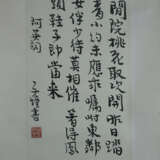 閒院桃花取次開昨日踏
青小約未應乖囑咐東鄰
女伴少待莫相催著得鳳
頭鞋子即當來